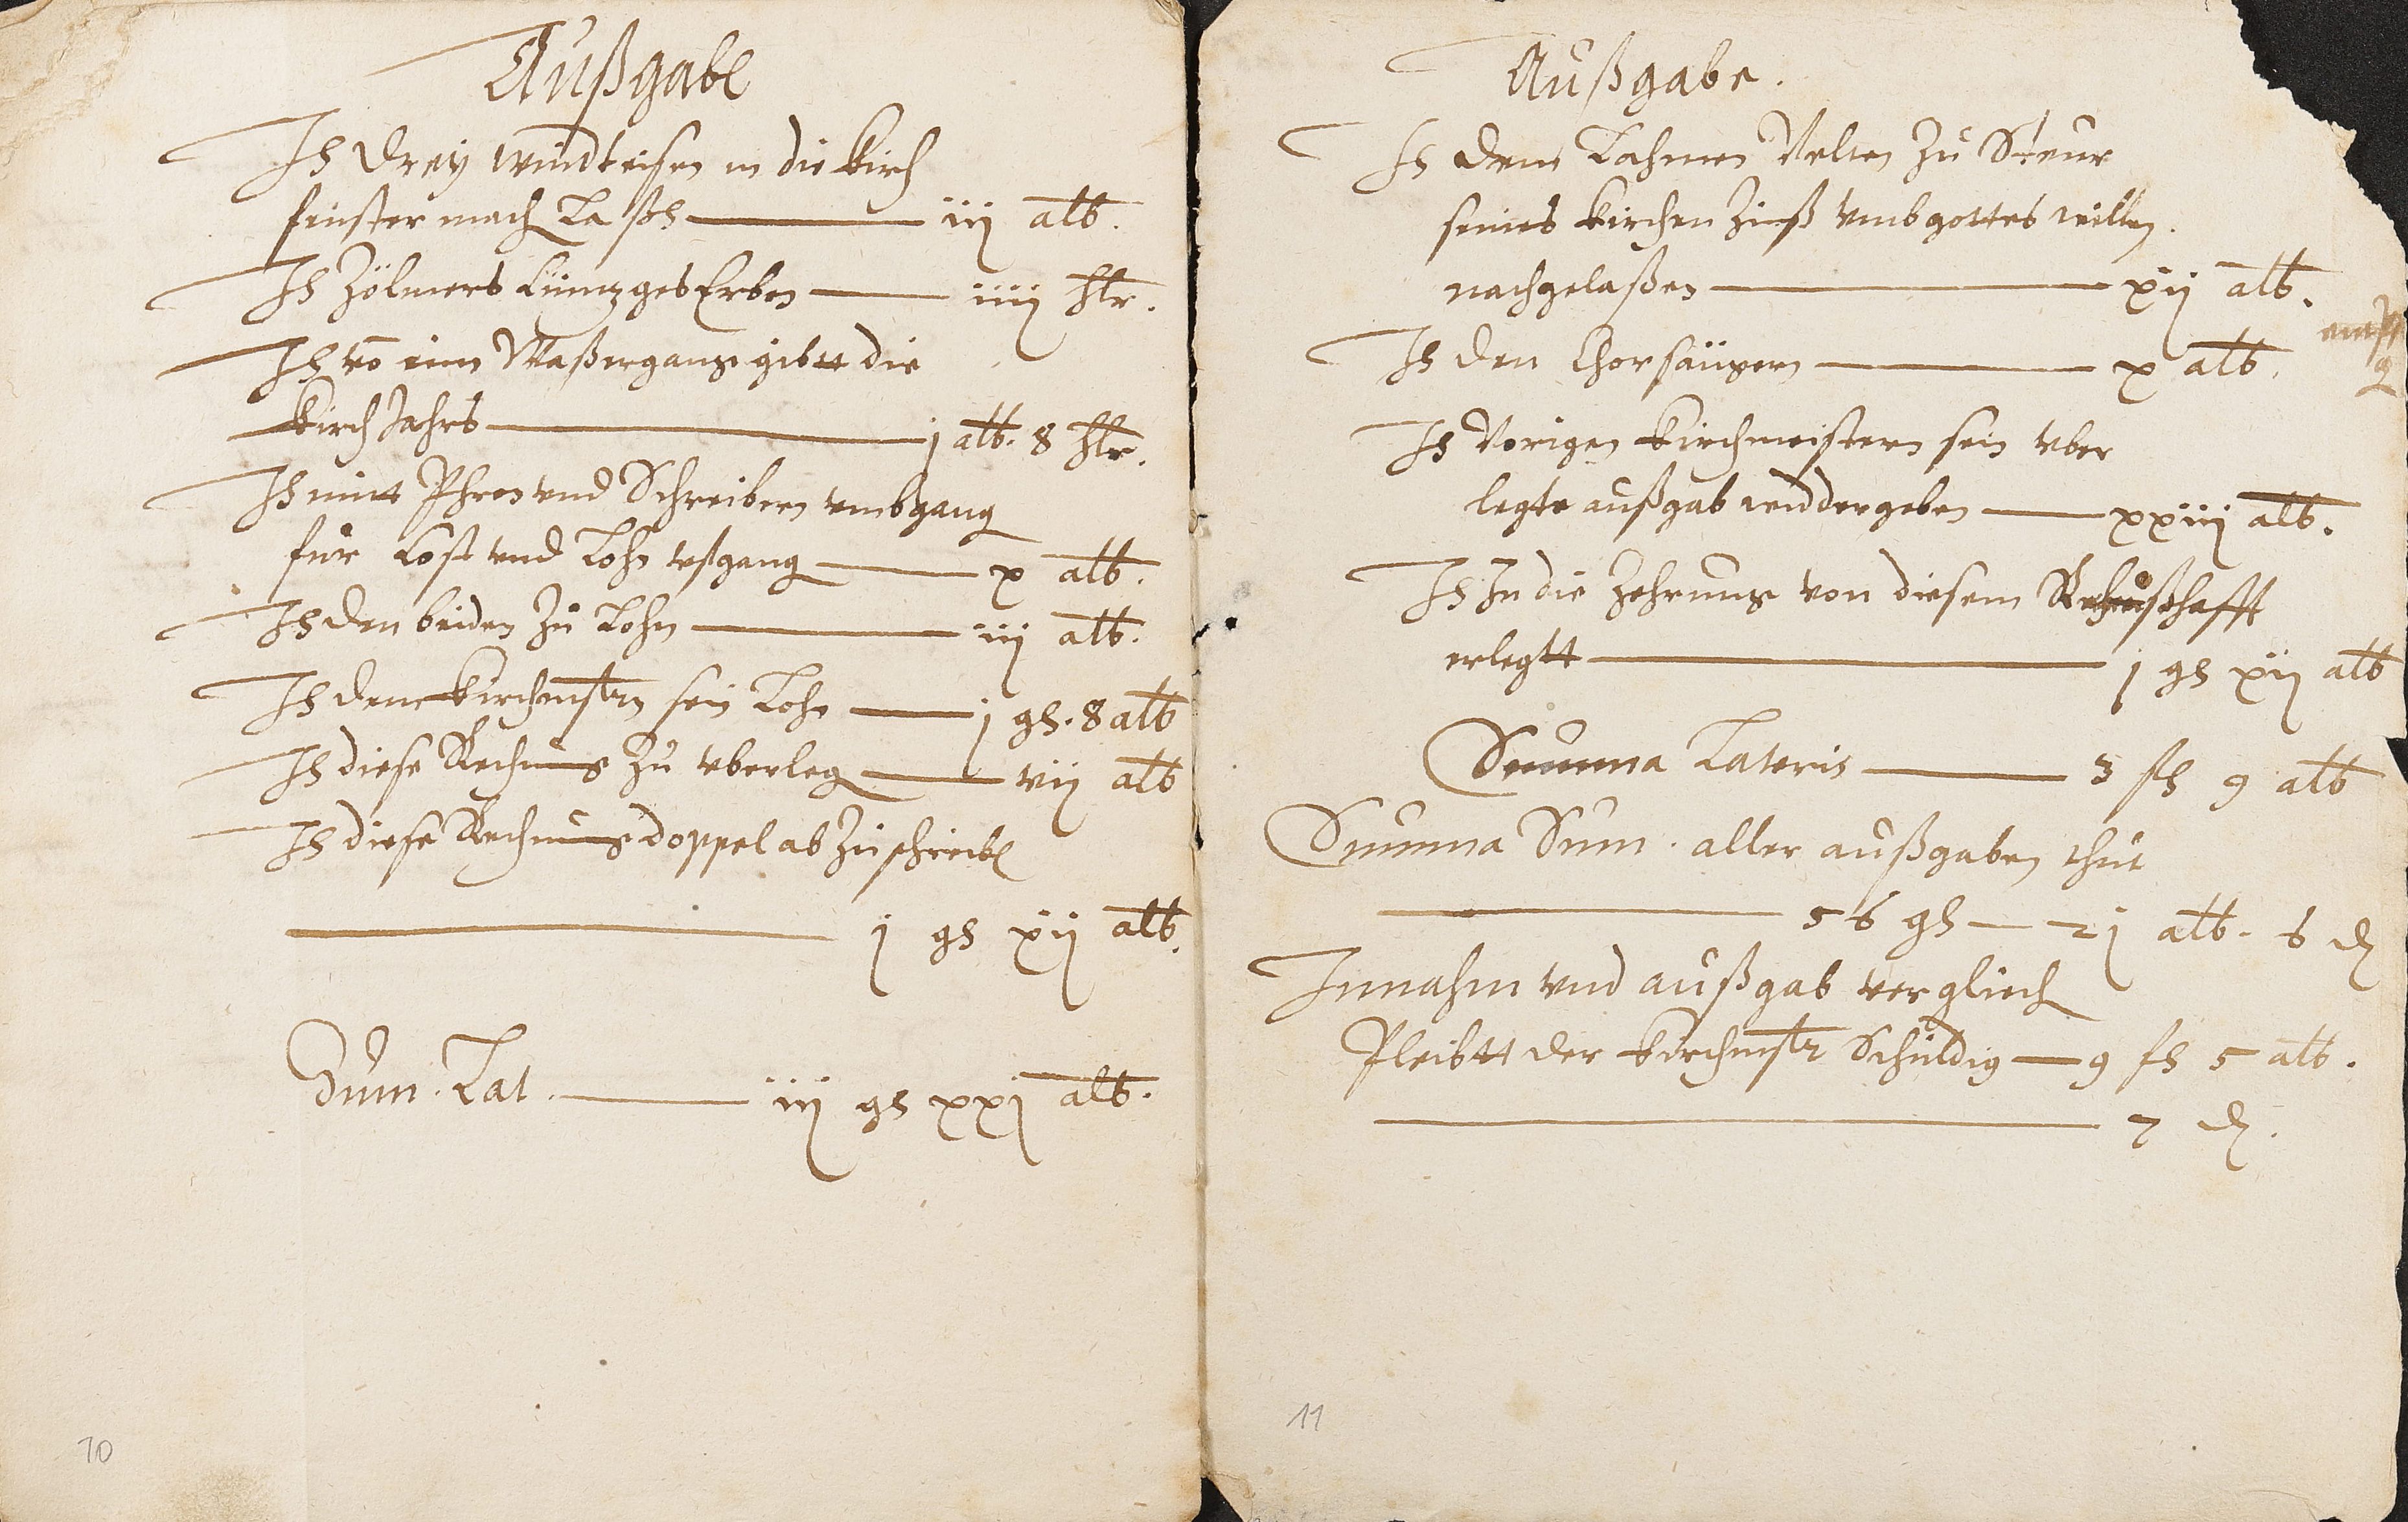 Außgabe
It drey windteisen in die kirch
finster mach laßen iij alb.
It Zölmers Cüntzges Erben iiij hlr.
It vo eim Waßergange gibtt die
kirch Jahrs j alb. 8 hlr.
It mitt Phren vnd Schreibern vmbgang
für Cost vnd Lohn vfgang x alb.
It den beiden zu Lohn iij alb.
It dem kirchmstrn sein Lohn j gl. 8 alb
It diese Rechnung zu vberleg vij alb
It diese Rechnung doppel ab zu schreibe
j gl xij alb.
Sum. Lat. iij gl xxj alb.
10
Außgabe.
It dem Lahmen Velten zu Steur
seines kirchen Zinß vmb gottes willen
nachgelaßen xij alb.
It den Chorsängern x alb.
It Vorigen kirchmeistern sein vber
legte außgab widdergeben xxiiij alb.
It In die Zehrung von diesem
erlegtt j gl xij alb
Summa Lateris 3 fl 9 alb
Summa Sum. aller außgaben thut
56 gl 21 alb. 6 d
Innahm vnd außgab vergliech
Pleibtt der kirchmstr Schuldig 9 fl 5 alb.
7 d.
11